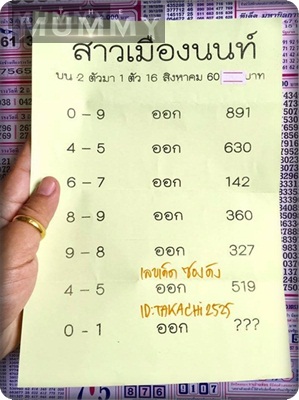 MUMMY
สาวเมืองนนท์
บน 2 ตัวมา 1 ตัว 16 สิงหาคม 60 บาท
0 - 9 ออก 891
4 - 5 ออก 630
6 - 7 ออก 142
8 - 9 ออก 360
9 - 8 ออก 327
เลขเด็ด ซองดัง
4 - 5 ออก 519
ID:TAKACHI2525
0 - 1 ออก ???